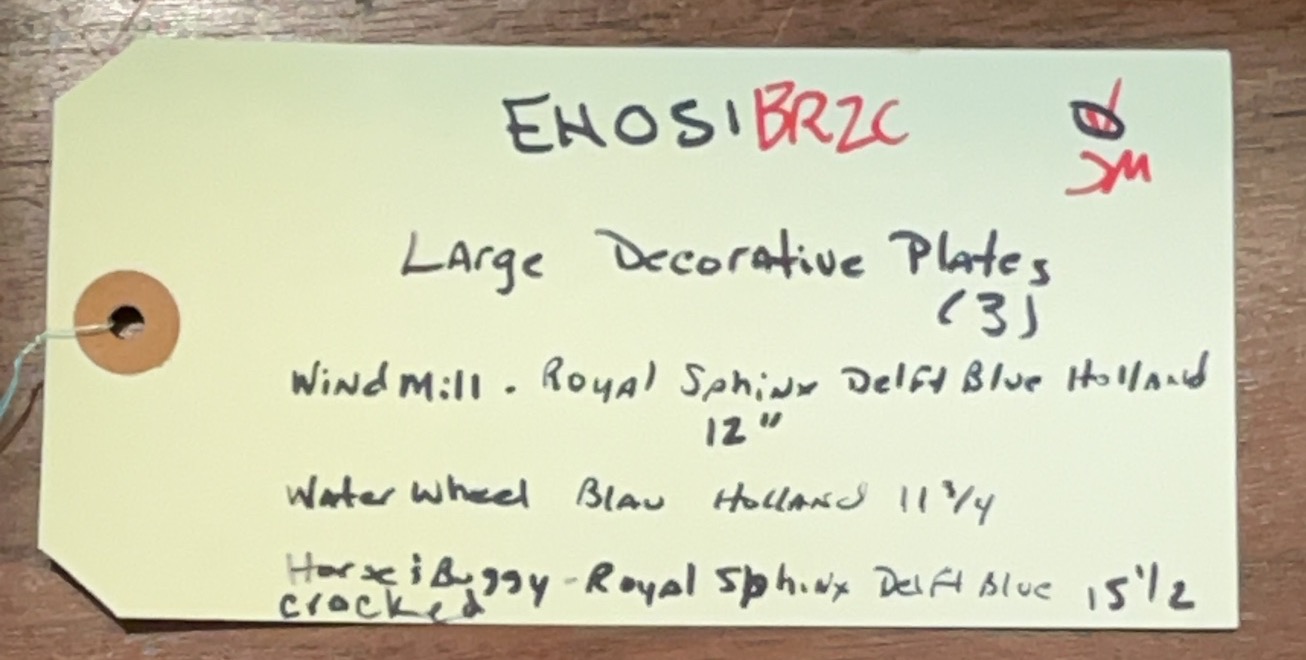 ENOSIBRZC
JM
LArge Decorative Plates
(3)
Windmill. Royal Sphinx Delft Blue Holland
12"
Water Wheel Blau Holland 11 3/4
Horse & Buggy - Royal Sphinx Delft Blue 15 1/2
cracked